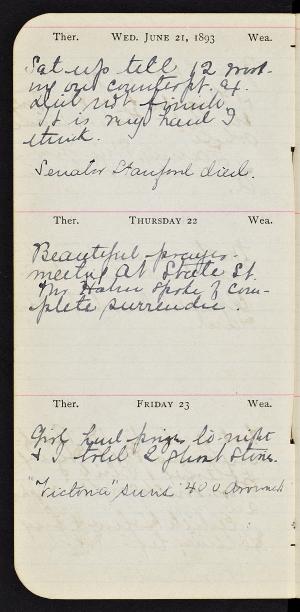 Ther. WED. JUNE 21, 1893 Wea.
Sat up till 12 work-
ing on counterpt. ex.
did not finish
It is very hard I
think.
Senator Stanford died.
Ther. THURSDAY 22 Wea.
Beautiful prayer
meeting at State St.
Mr Hahn spoke of com-
plete surrender.
Ther. FRIDAY 23 Wea.
Girls had to-night
& I told 2 ghost stories.
"Victoria" sunk 400 drowned